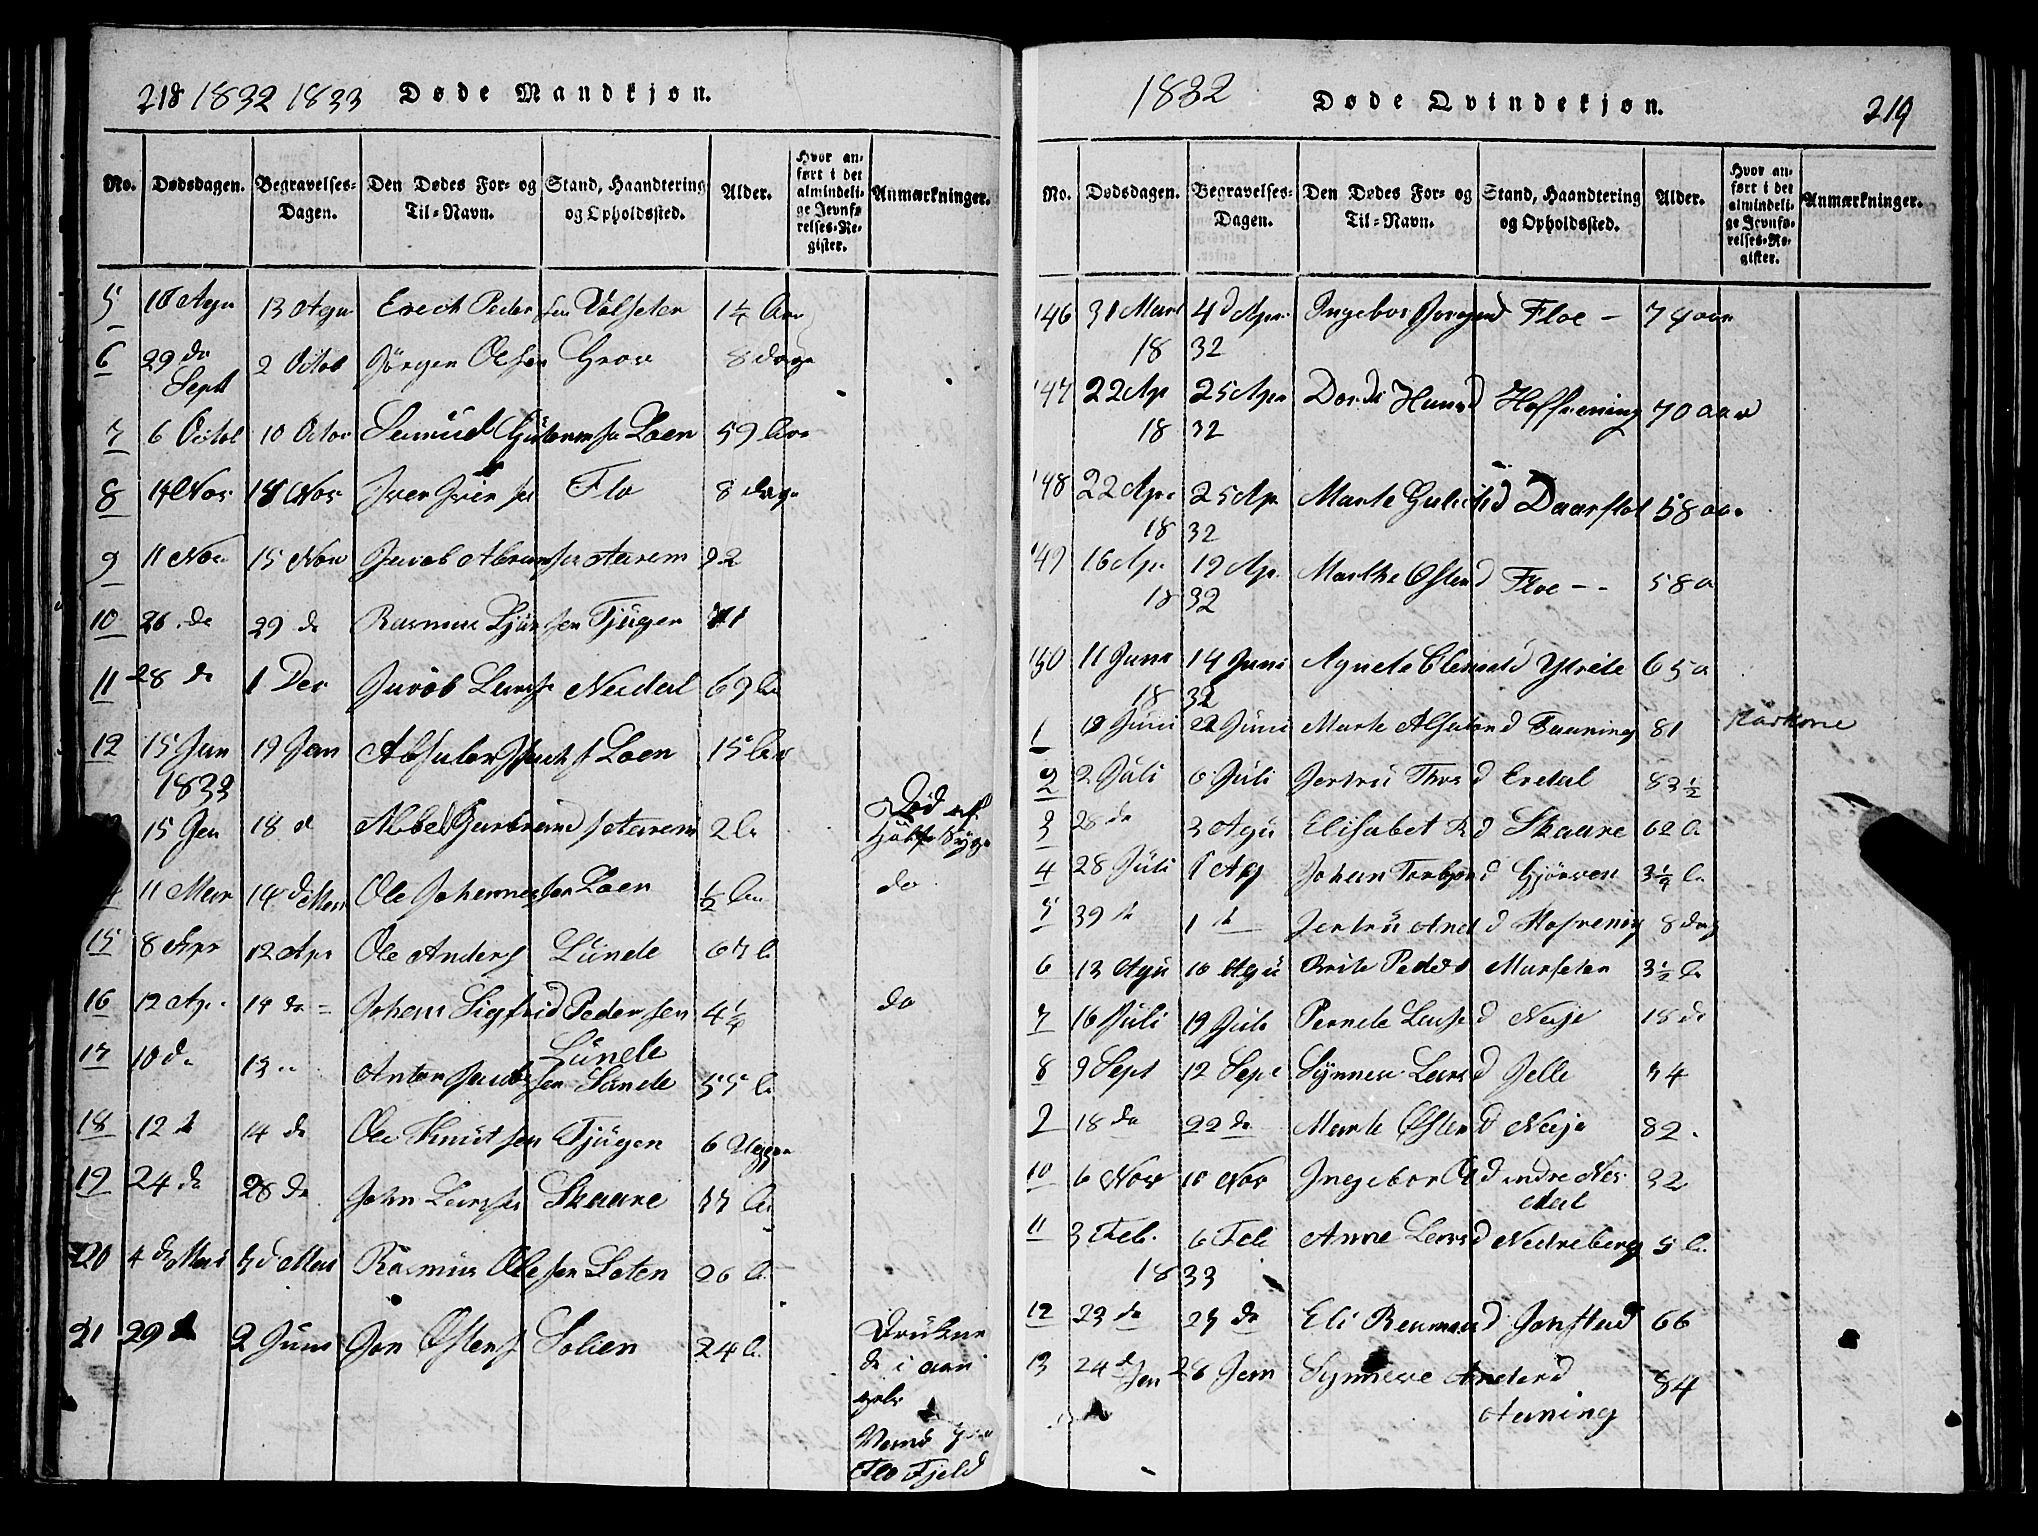 218 1832 1833 Døde Mandkjøn.
No. Dødsdagen. Begravelses-Dagen. Den Dødes For- og Til-Navn. Stand, Haandtering og Opholdssted. Alder. Hvor anført i det almindelige Jevnførelses-Register. Anmærkninger.
5 18 Agu 13 Agu Erech Peder sen Volseter 1¼ Aar
6 29 da 2 Octob Jørgen Olsen Grov 8 dage
Sept
7 6 Octob 10 Octor Samüel Loen 59 Aar
8 14 Nov 18 Nov Iver Iver sen Flo 8 dage
9 11 Nov 15 Nov Jacob Abram sen Aarem 92
10 26 da 29 da Rasmus sen Tjügen 71
11 28 da 1 Dec Jacob Lars Nesdal 69 Aa
12 15 Jan 19 Jan Absalon Loen 15 Aar
1833
15 Jan 18 d Abel Gutorm Aarem 2 Aa Død af
11 Mar 14 d Mar Ole Johannes sen Loen ½ Aar do
15 8 Apr 12 Apr Ole Anders Lunde 67 A
16 12 Apr 14 da Johan Sigfrid Pedersen 4¼ do
Lünde
17 10 da 13 " Anton Jacob sen Sande 55 A
18 12 d 14 da Ole Knüt sen Tjügen 6 Uger
19 24 da 28 da John Larsen Skaare 77 A
20 4 d Mai 7 d Mai Rasmus Ole sen Loten 26 A
21 29 d 2 Juni Jon Østens Solien 24 A. Drukne
de i aan
Vand
Flo Fjeld
1832 Døde Qvindekjøn. 219
No. Dødsdagen. Begravelses-Dagen. Den Dødes For- og Til-Navn. Stand, Haandtering og Opholdssted. Alder. Hvor anført i det almindelige Jevnførelses-Register. Anmærkninger.
146 31 Mars 4 d Apr Ingebor d Floe - 74 aar
18 32
147 22 Ap 25 Apr Hans d Hoffrening 70 aar
18 32
148 22 Apr 25 Apr Marte d Daarstol 58 aar
18 32
149 16 Apr 19 Apr Marthe Østen d Floe - - 58 a
18 32
150 11 Juni 14 Juni Agnete Clemed Ytreide 65 a
18 32
1 Juni 22 Juni Marte Absalon d Tauning 81
2 2 Juli 6 Juli Jertru Thor d Eredal 83½
3 28 da 3 Agu Elisabet R d Skaare 62 A
4 28 Juli 1 Ag Johan Torbjør d Gjørven 3¼ A
5 39 d 1 d Jertru And d Hofrenig 8 dag
6 13 Agu 16 Agu Brite Peders d Marseter 3½ A
7 16 Juli 19 Juli Pernele Lars d Neje 18 d
8 9 Sept 12 Sept Synneve Lars d Jelle 34
9 18 da 22 da Marte Østen d Neje 82.
10 6 Nov 10 Nov Ingebor Ol d indre Nes 32
dal
11 3 Feb. 6 Feb Anne Lars d Nedreberg 5 A
18 33
12 23 da 27 da Eli Rasmus d Jonstad 66
13 24 d Jan 28 Jan Synneve Anders d 84
Auning